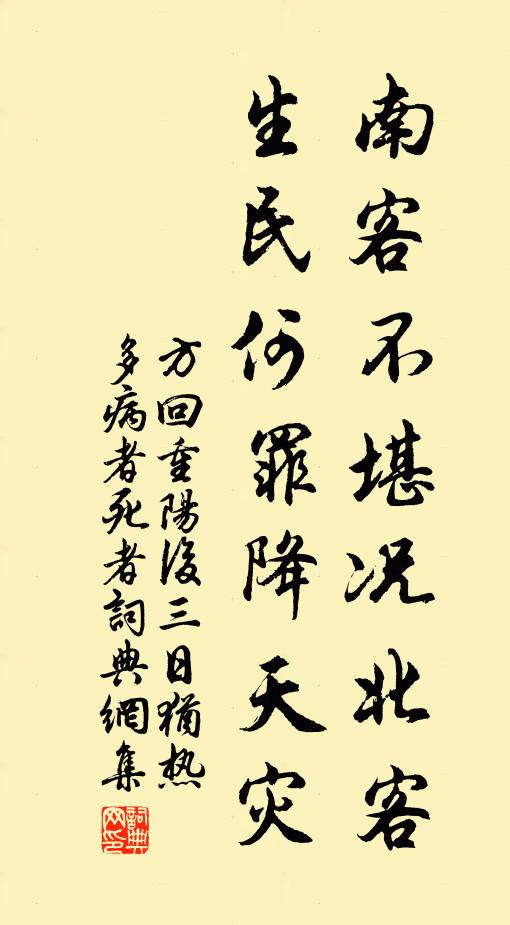 南客不堪况北客
生民何罪降天灾
方回重陽後三日犹热
多病者死者詞典網集
詞典網印